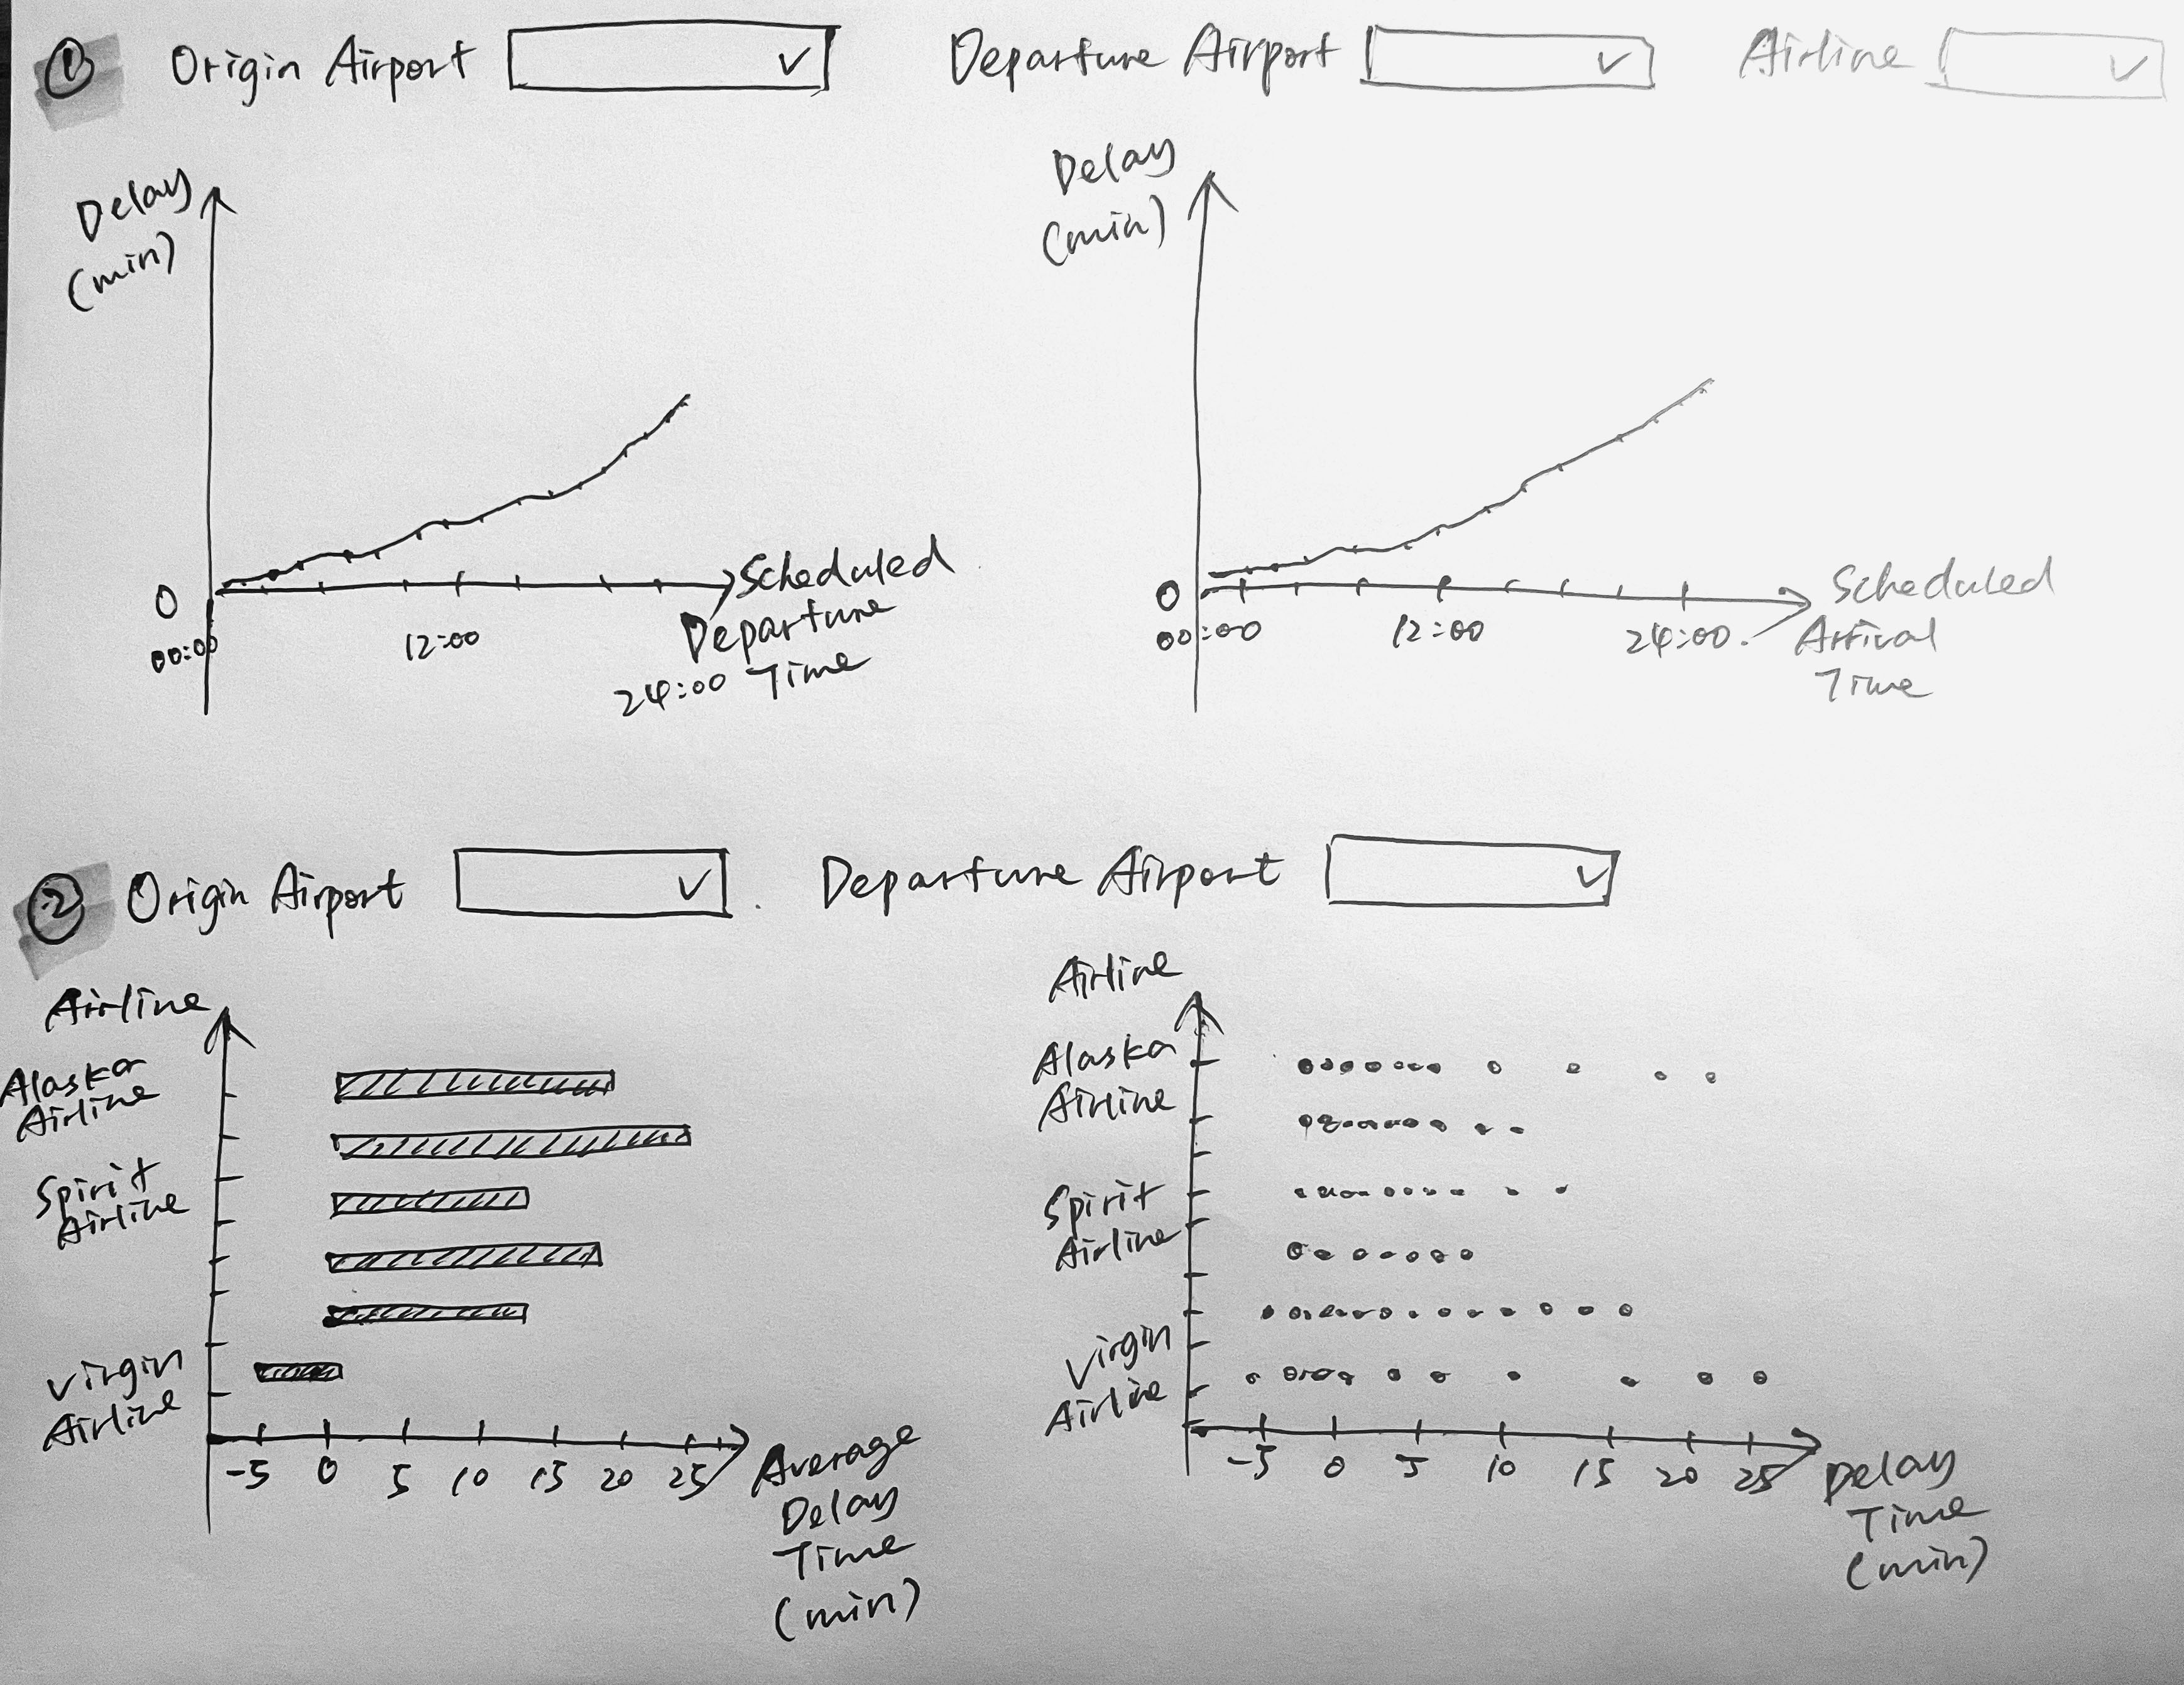 ① Origin Airport Departure Airport Airline
Delay
(min)
0
00:00 12:00 24:00
Scheduled
Departure
Time
Delay
(min)
0
00:00 12:00 24:00
Scheduled
Arrival
Time
② Origin Airport Departure Airport
Airline
Alaska
Airline
Spirit
Airline
Virgin
Airline
-5 0 5 10 15 20 25
Average
Delay
Time
(min)
Airline
Alaska
Airline
Spirit
Airline
Virgin
Airline
-5 0 5 10 15 20 25
Delay
Time
(min)